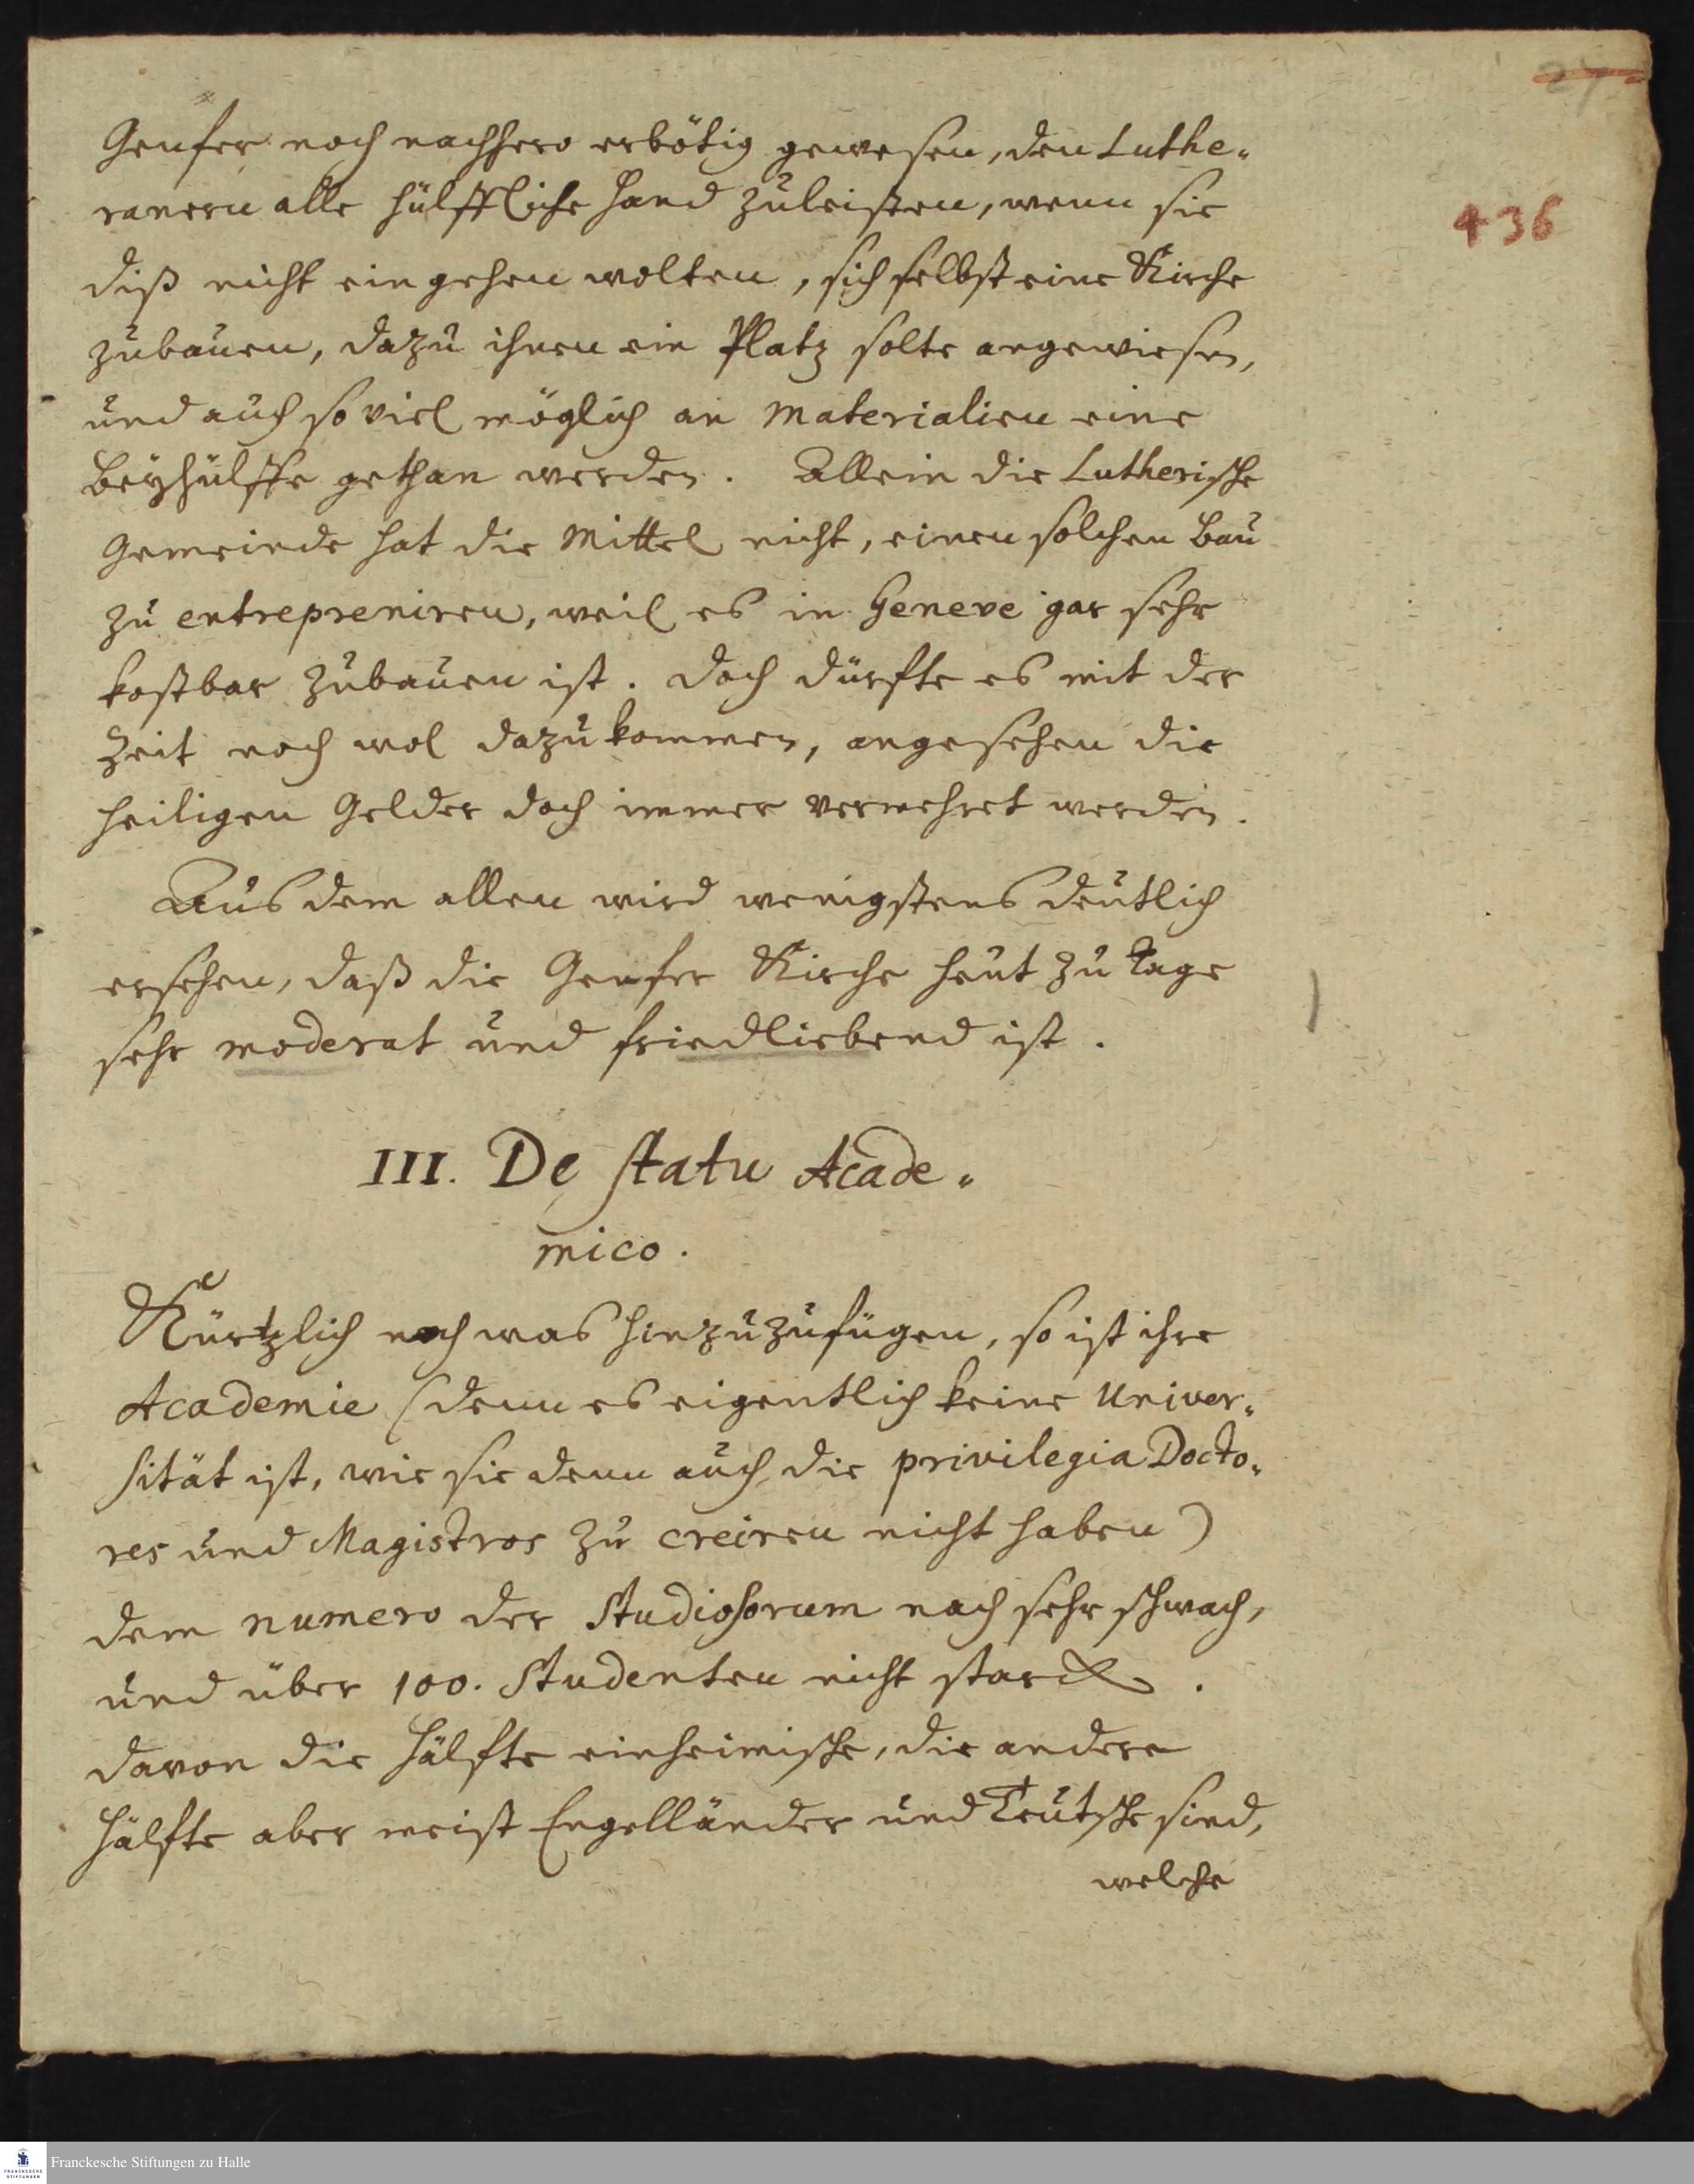 27
436
Genfer noch nachhero erbötig gewesen, den Luthe-
ranern alle hülffliche Hand zuleisten, wenn sie
diß nicht eingehen wolten, sich selbst eine Kirche
zubauen, dazu ihnen ein Platz solte angewiesen,
und auch so viel möglich an Materialien eine
Beyhülffe gethan werden. Allein die Lutherische
Gemeinde hat die Mittel nicht, einen solchen Bau
zu entrepreniren, weil es in Geneve gar sehr
kostbar zubauen ist. Doch dürfte es mit der
Zeit noch wol dazu kommen, angesehen die
heiligen Gelder doch immer vermehret werden.
Aus dem allen wird wenigstens deutlich
ersehen, daß die Genfer Kirche heut zu Tage
sehr moderat und friedliebend ist.
III. De statu Acade-
mico.
Kürtzlich noch was hinzuzufügen, so ist ihre
Academie (denn es eigentlich keine Univer-
sität ist, wie sie denn auch die privilegia Docto-
res und Magistros zu creiren nicht haben)
dem numero der Studiosorum nach sehr schwach,
und über 100. Studenten nicht starck.
davon die Hälfte einheimische, die andere
Hälfte aber meist Engelländer und Teutsche sind,
welche
Franckesche Stiftungen zu Halle
FRANCKESCHE
STIFTUNGEN